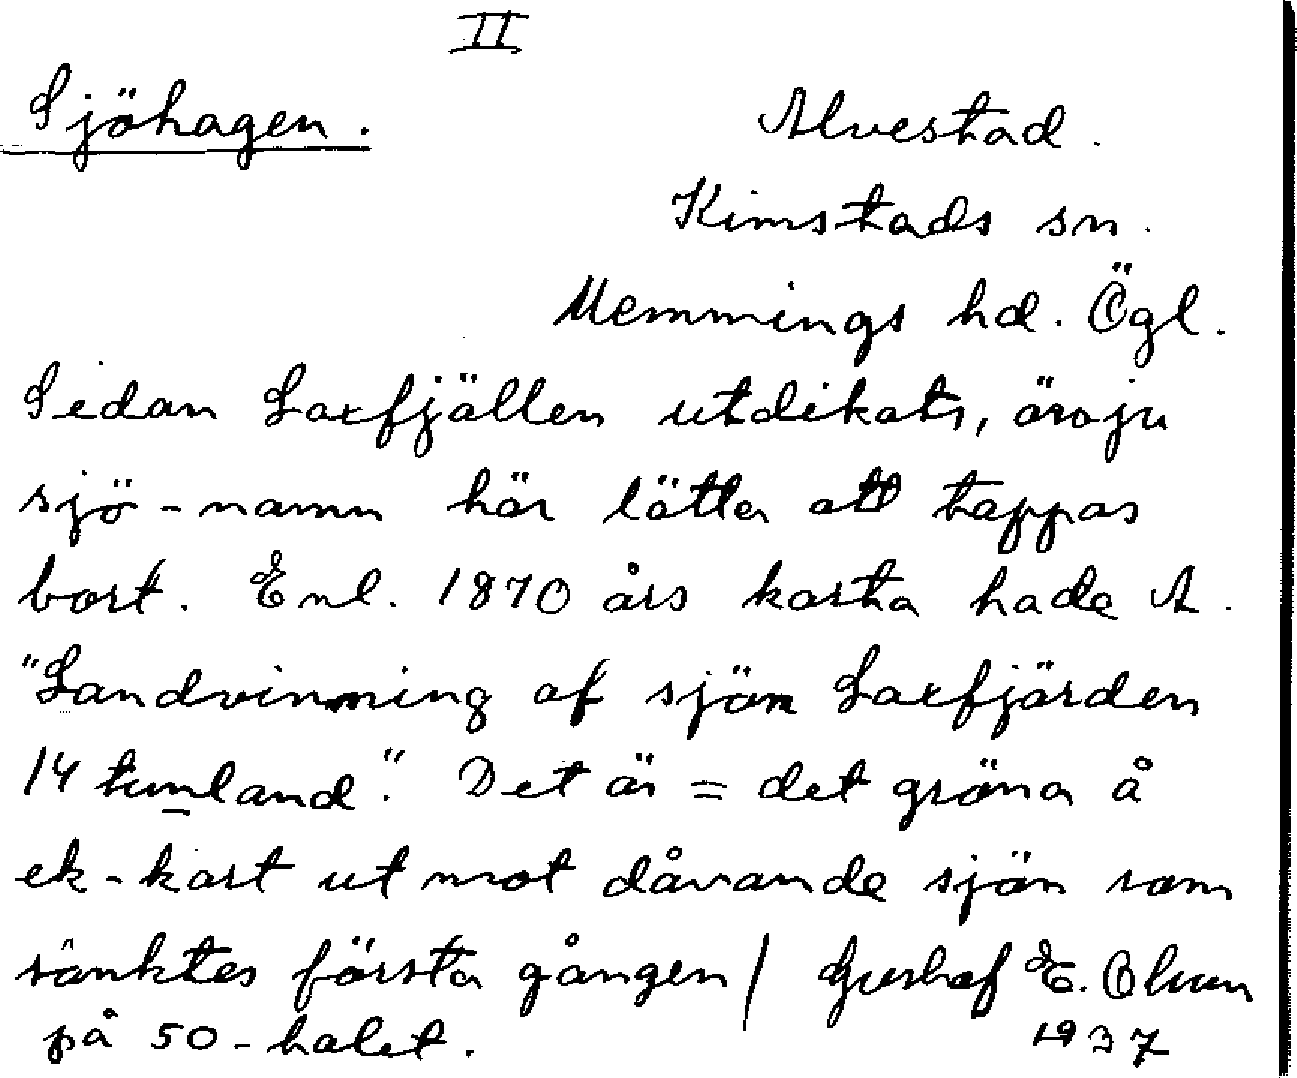 II
Sjöhagen.
Alvestad.
Kimstads sn.
Memmings hd. Ögl.
Sedan Laxfjällen utdikats, äro ju
sjö-namn här lätta att tappas
bort. Enl. 1870 års karta hade A.
"Landvinning af sjön Laxfjärden
14 tunland." Det är = det gröna å
ek-kart ut mot dåvande sjön som
sänktes första gången / Gustaf E. Olsson
på 50-talet. 1937